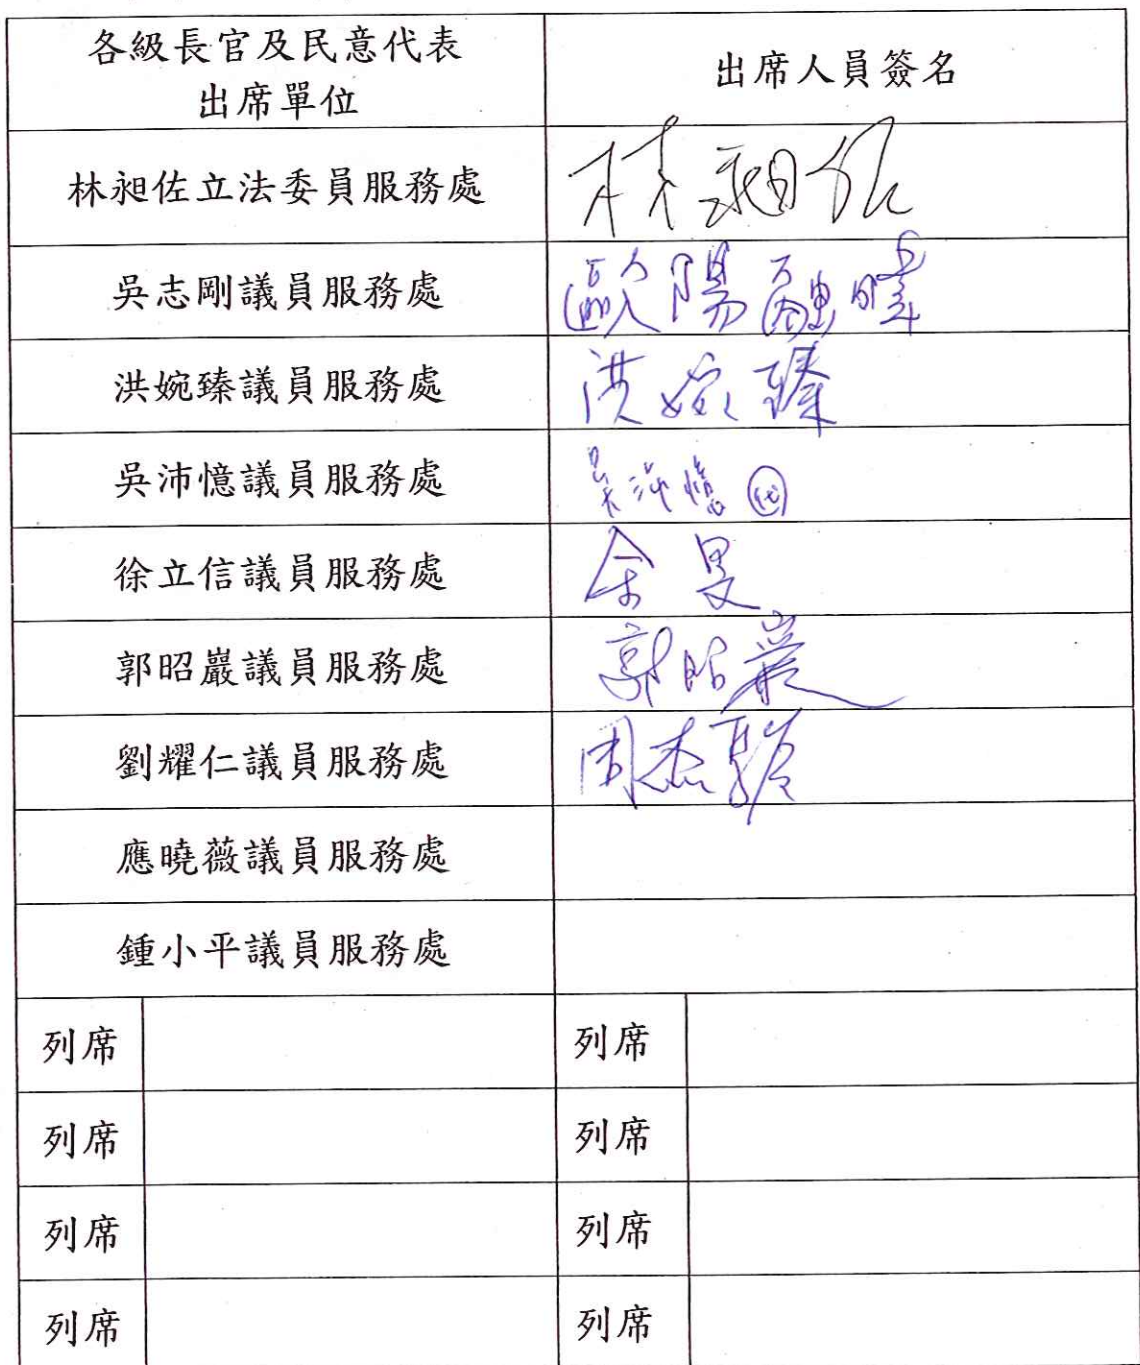 各級長官及民意代表
出席單位
出席人員簽名
林昶佐立法委員服務處
林昶佐
吳志剛議員服務處
歐陽
洪婉臻議員服務處
洪婉臻
吳沛憶議員服務處
吳沛憶 代
徐立信議員服務處
余旻
郭昭巖議員服務處
郭昭巖
劉耀仁議員服務處
周杰
應曉薇議員服務處
鍾小平議員服務處
列席 列席
列席 列席
列席 列席
列席 列席